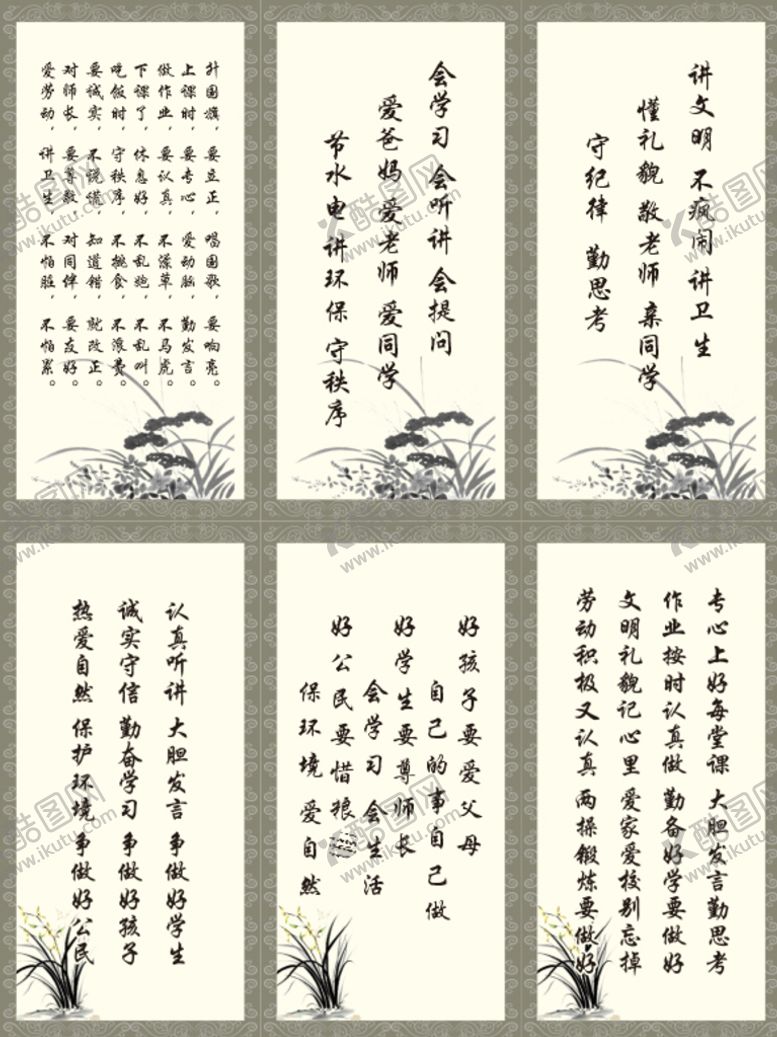 升国旗，要立正，唱国歌，要响亮。
上课时，要专心，爱动脑，勤发言。
做作业，要认真，不潦草，不马虎。
下课了，休息好，不乱跑，不乱叫。
吃饭时，守秩序，不挑食，不浪费。
要诚实，不说谎，知道错，就改正。
对师长，要尊敬，对同伴，要友好。
爱劳动，讲卫生，不怕脏，不怕累。
会学习 会听讲 会提问
爱爸妈 爱老师 爱同学
节水电 讲环保 守秩序
讲文明 不疯闹 讲卫生
懂礼貌 敬老师 亲同学
守纪律 勤思考
认真听讲 大胆发言 争做好学生
诚实守信 勤奋学习 争做好孩子
热爱自然 保护环境 争做好公民
好孩子要爱父母
自己的事自己做
好学生要尊师长
会学习 会生活
好公民要惜狼
保环境 爱自然
专心上好每堂课 大胆发言勤思考
作业按时认真做 勤备好学要做好
文明礼貌记心里 爱家爱校别忘掉
劳动积极又认真 两操锻炼要做好
酷图网
www.ikutu.com